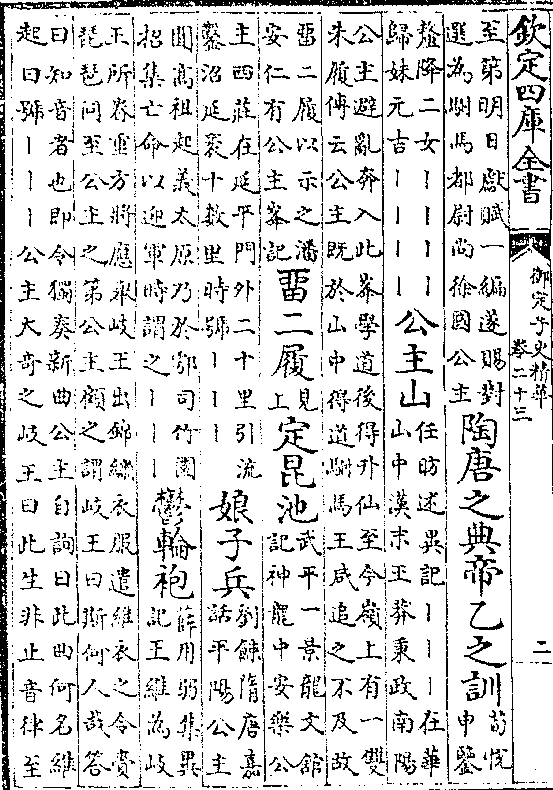 欽定四庫全書 御定子史精華 卷二十三 二
至第明日獻賦一編遂賜對
選為駙馬都尉尚徐國公主
陶唐之典帝乙之訓
荀悅
申鑒
釐降二女丨丨丨丨
歸妹元吉丨丨丨丨
公主山
任昉述異記丨丨丨在華
山中漢末王莽秉政南陽
公主避亂奔入此峯學道後得升仙至今嶺上有一雙
朱履傳云公主既於山中得道駙馬王咸追之不及故
畱二履以示之潘
安仁有公主峯記
畱二履
見
上
定昆池
武平一景龍文館
記神龍中安樂公
主西莊在延平門外二十里引流
鑿沼延袤十數里時號丨丨丨
娘子兵
劉餗隋唐嘉
話平陽公主
聞高祖起義太原乃於鄠司竹園
招集亡命以迎軍時謂之丨丨丨
鬱輪袍
薛用弱集異
記王維為岐
王所眷重方將應舉岐王出錦繡衣服遣維衣之令賫
琵琶同至公主之第公主顧之謂岐王曰斯何人哉答
曰知音者也即令獨奏新曲公主自詢曰此曲何名維
起曰號丨丨丨公主大奇之岐王曰此生非止音律至